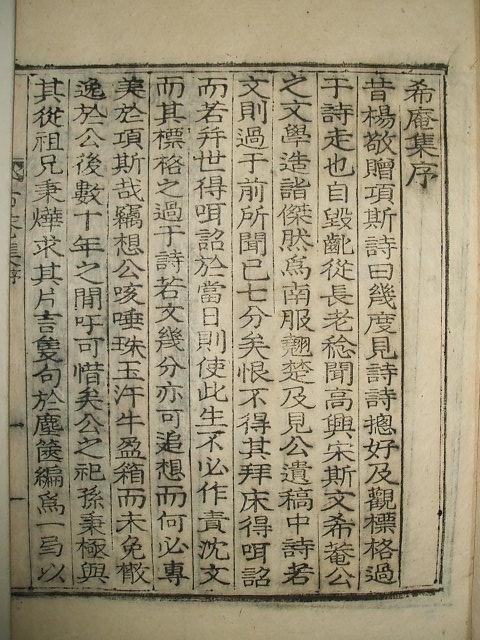 希庵集序
昔楊敬贈項斯詩曰幾度見詩詩揔好及觀標格過
于詩走也自毀齓從長老稔聞高興宋斯文希菴公
之文學造詣傑然爲南服翹楚及見公遺稿中詩若
文則過于前所聞已七分矣恨不得其拜床得咡詔
而若幷世得咡詔於當日則使此生不必作責沈文
而其標格之過于詩若文幾分亦可追想而何必專
美於項斯哉竊想公咳唾珠玉汗牛盈箱而未免散
逸於公後數十年之間吁可惜矣公之祀孫秉極與
其從祖兄秉燁求其片言隻句於塵篋編爲一局以